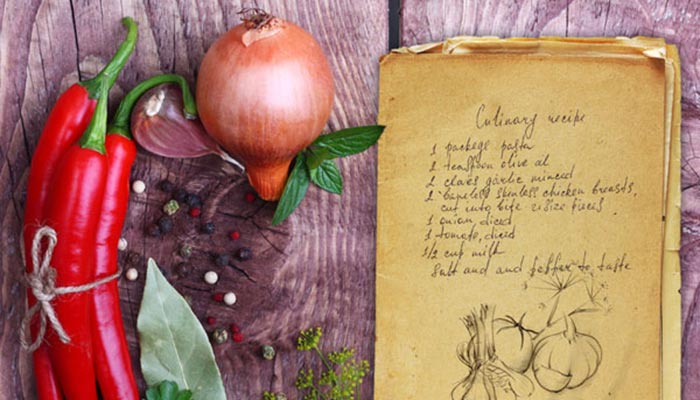 Culinary recipe
1 packege pasta
2 teaspoon olive oil
2 claves garlic minced
2 boneless skinless chicken breasts,
cut into bite size pieces
1 onion diced
1 tomato, diced
1/2 cup milk
Salt and and pepper to taste